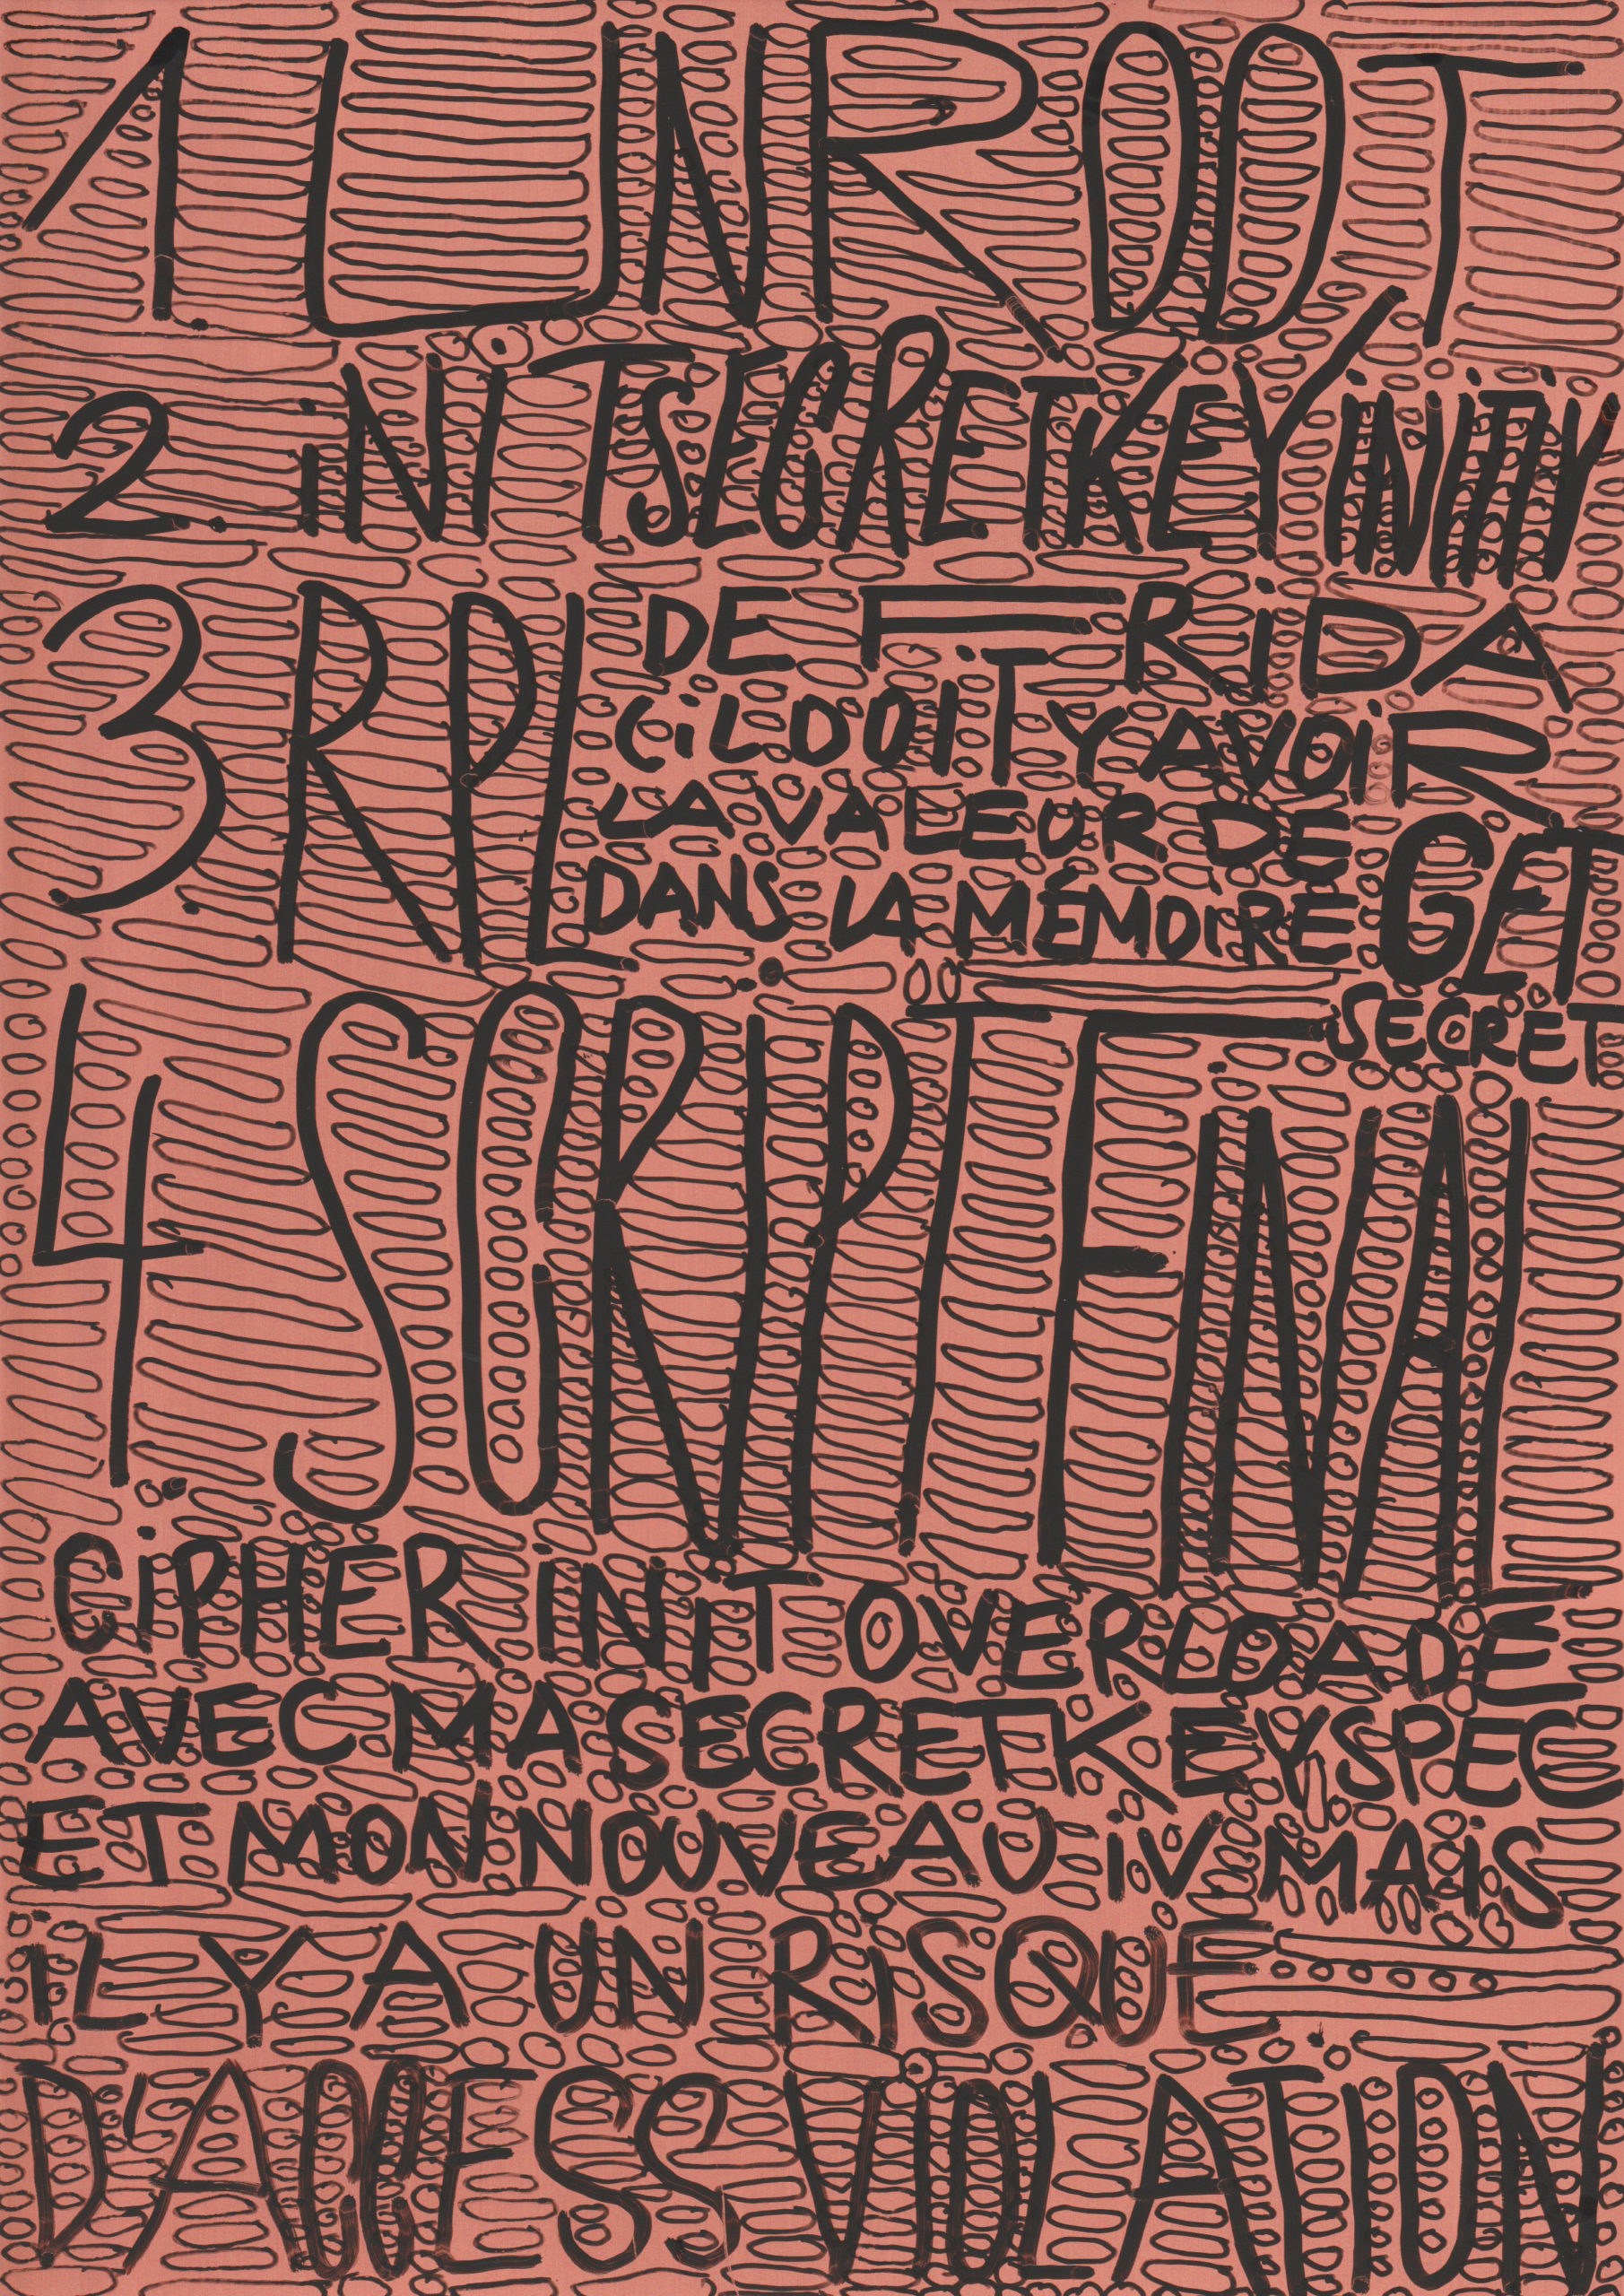 1. UNROOT
2. iNiT SECRETKEY iNiTiV
3. RPL DE FRiDA
(iL DOIT Y AVOiR
LA VALEUR DE
DANS LA MÉMOIRE GET
SECRET
4. SCRIPT FiNAL
CiPHER iNiT OVERLOADE
AVEC MA SECRETKEYSPEC
ET MON NOUVEAU iV MAiS
iL Y A UN RiSQUE
D'ACCESS ViOLATiON